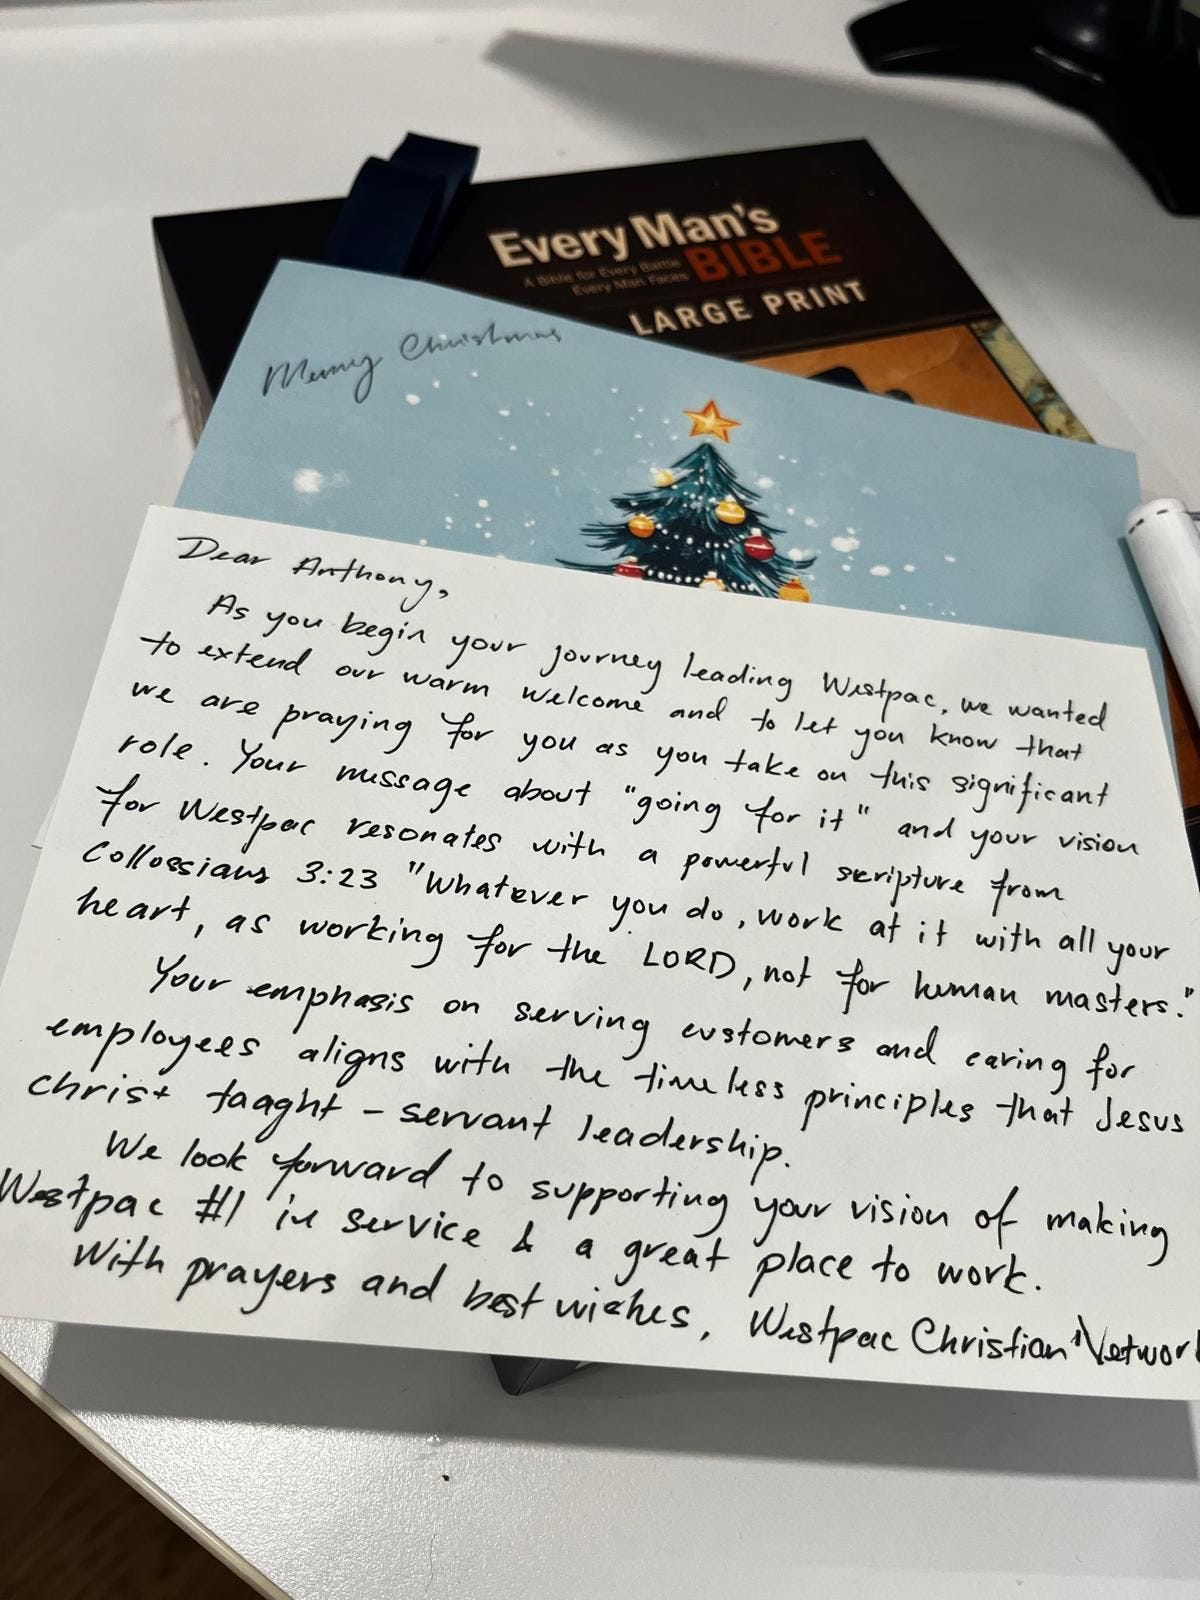 Every Man's
BIBLE
A Bible for Every Battle
Every Man Faces
LARGE PRINT
Merry Christmas
Dear Anthony,
As you begin your journey leading Westpac, we wanted
to extend our warm welcome and to let you know that
we are praying for you as you take on this significant
role. Your message about "going for it" and your vision
for Westpac resonates with a powerful scripture from
Collossians 3:23 "Whatever you do, work at it with all your
heart, as working for the LORD, not for human masters."
Your emphasis on serving customers and caring for
employees aligns with the timeless principles that Jesus
christ taaght - servant leadership.
We look forward to supporting your vision of making
Westpac #1 in service & a great place to work.
With prayers and best wishes, Westpac Christian Networ